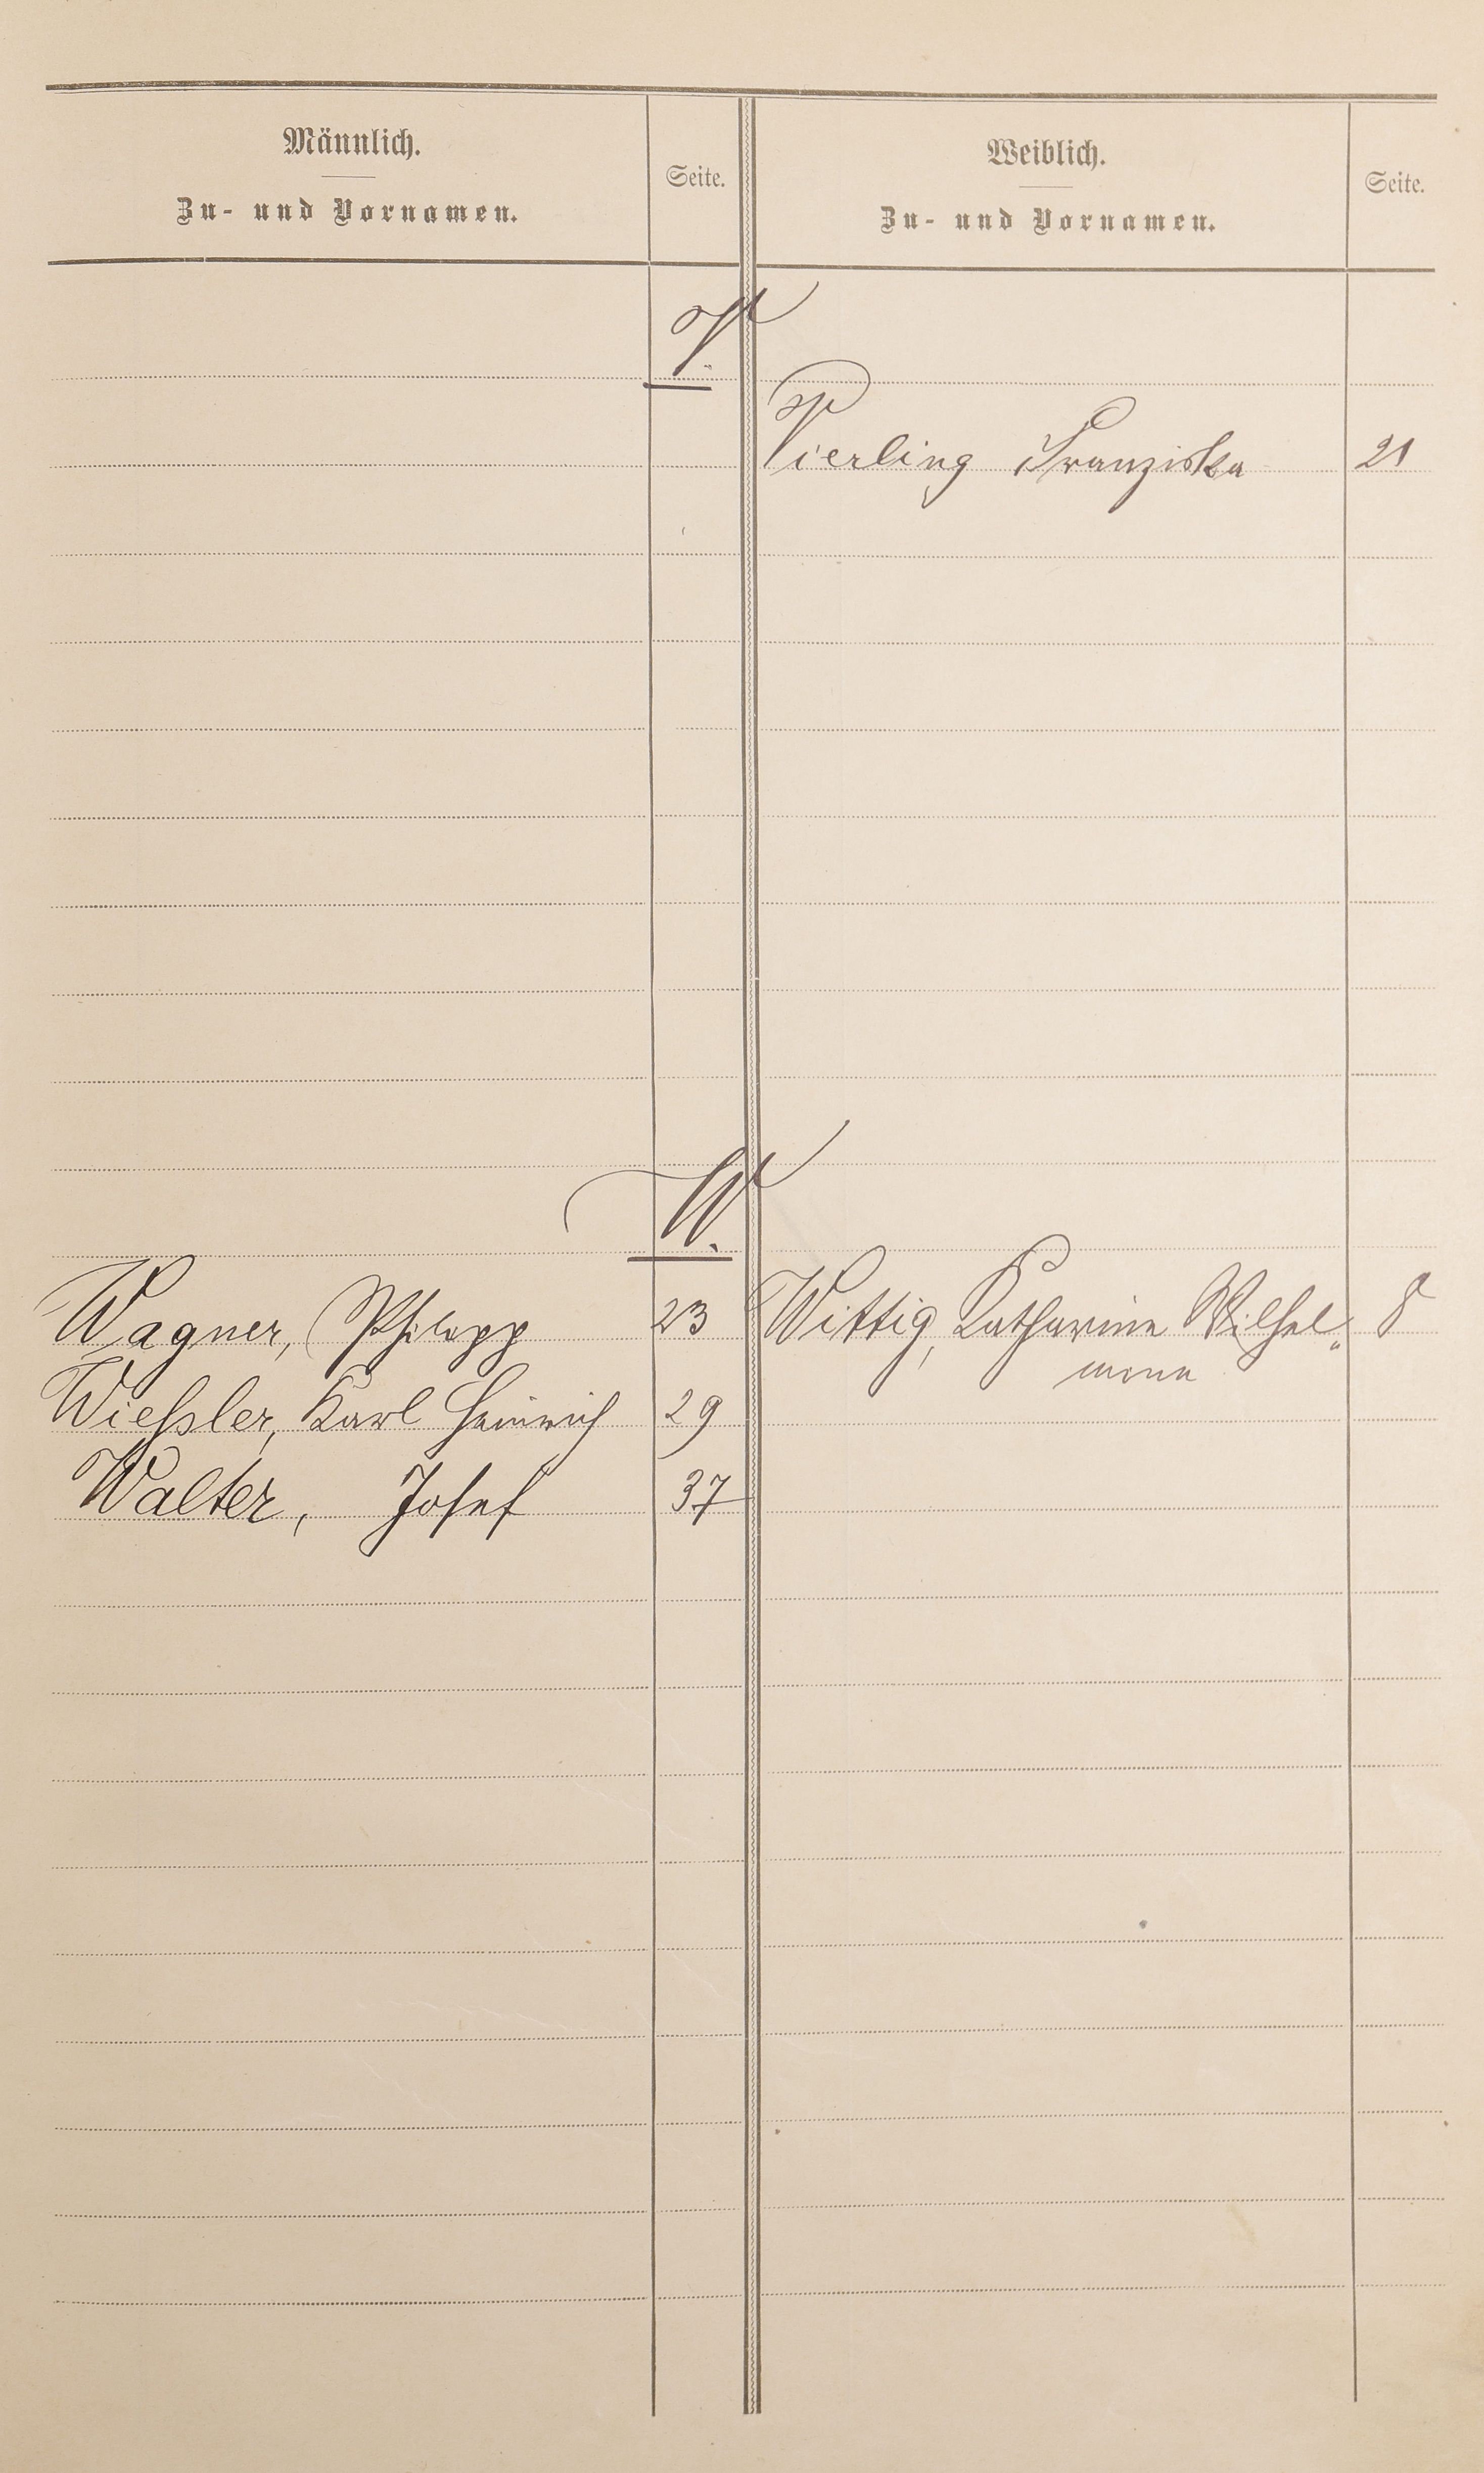 Männlich.
Zu- und Vornamen.
Seite.
Weiblich.
Zu- und Vornamen.
Seite.
V.
Vierling Franziska 21
W.
Wagner, Philipp 23
Wittig, Katharina Wilhel„ 8
mina
Wießler, Karl Heinrich 29
Walter, Josef 37